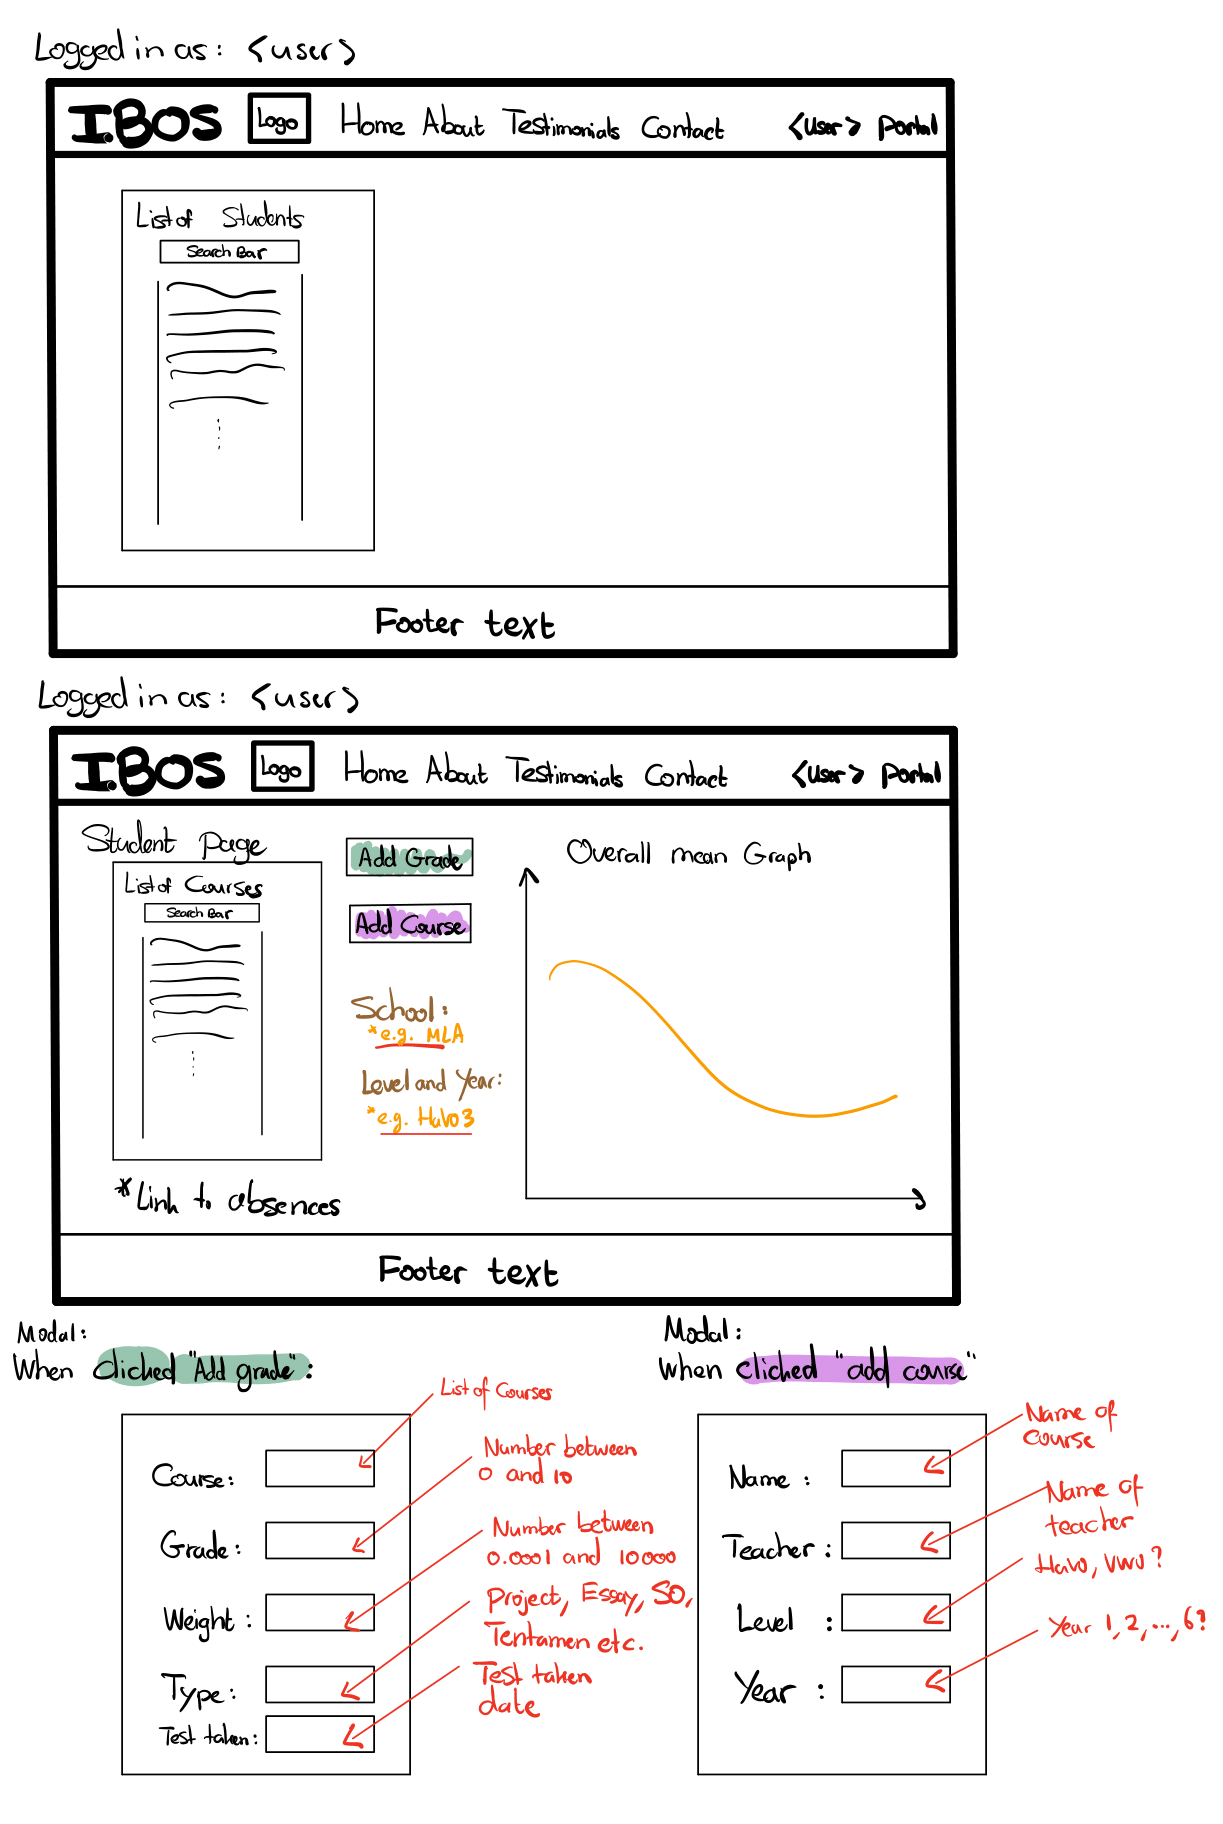 Logged in as: <user>
I.BOS Logo Home About Testimonials Contact <User> Portal
List of Students
Search Bar
Footer text
Logged in as: <user>
I.BOS Logo Home About Testimonials Contact <User> Portal
Student Page
List of Courses
Search Bar
*Link to absences
Add Grade
Add Course
School:
*e.g. MLA
Level and Year:
*e.g. Havo 3
Overall mean Graph
Footer text
Modal:
When clicked "Add grade":
Course:
List of Courses
Grade:
Number between
0 and 10
Weight:
Number between
0.0001 and 10000
Type:
Project, Essay, SO,
Tentamen etc.
Test taken:
Test taken
date
Modal:
When clicked "add course"
Name:
Name of
course
Teacher:
Name of
teacher
Level:
Havo, vwo?
Year:
Year 1, 2, ..., 6?